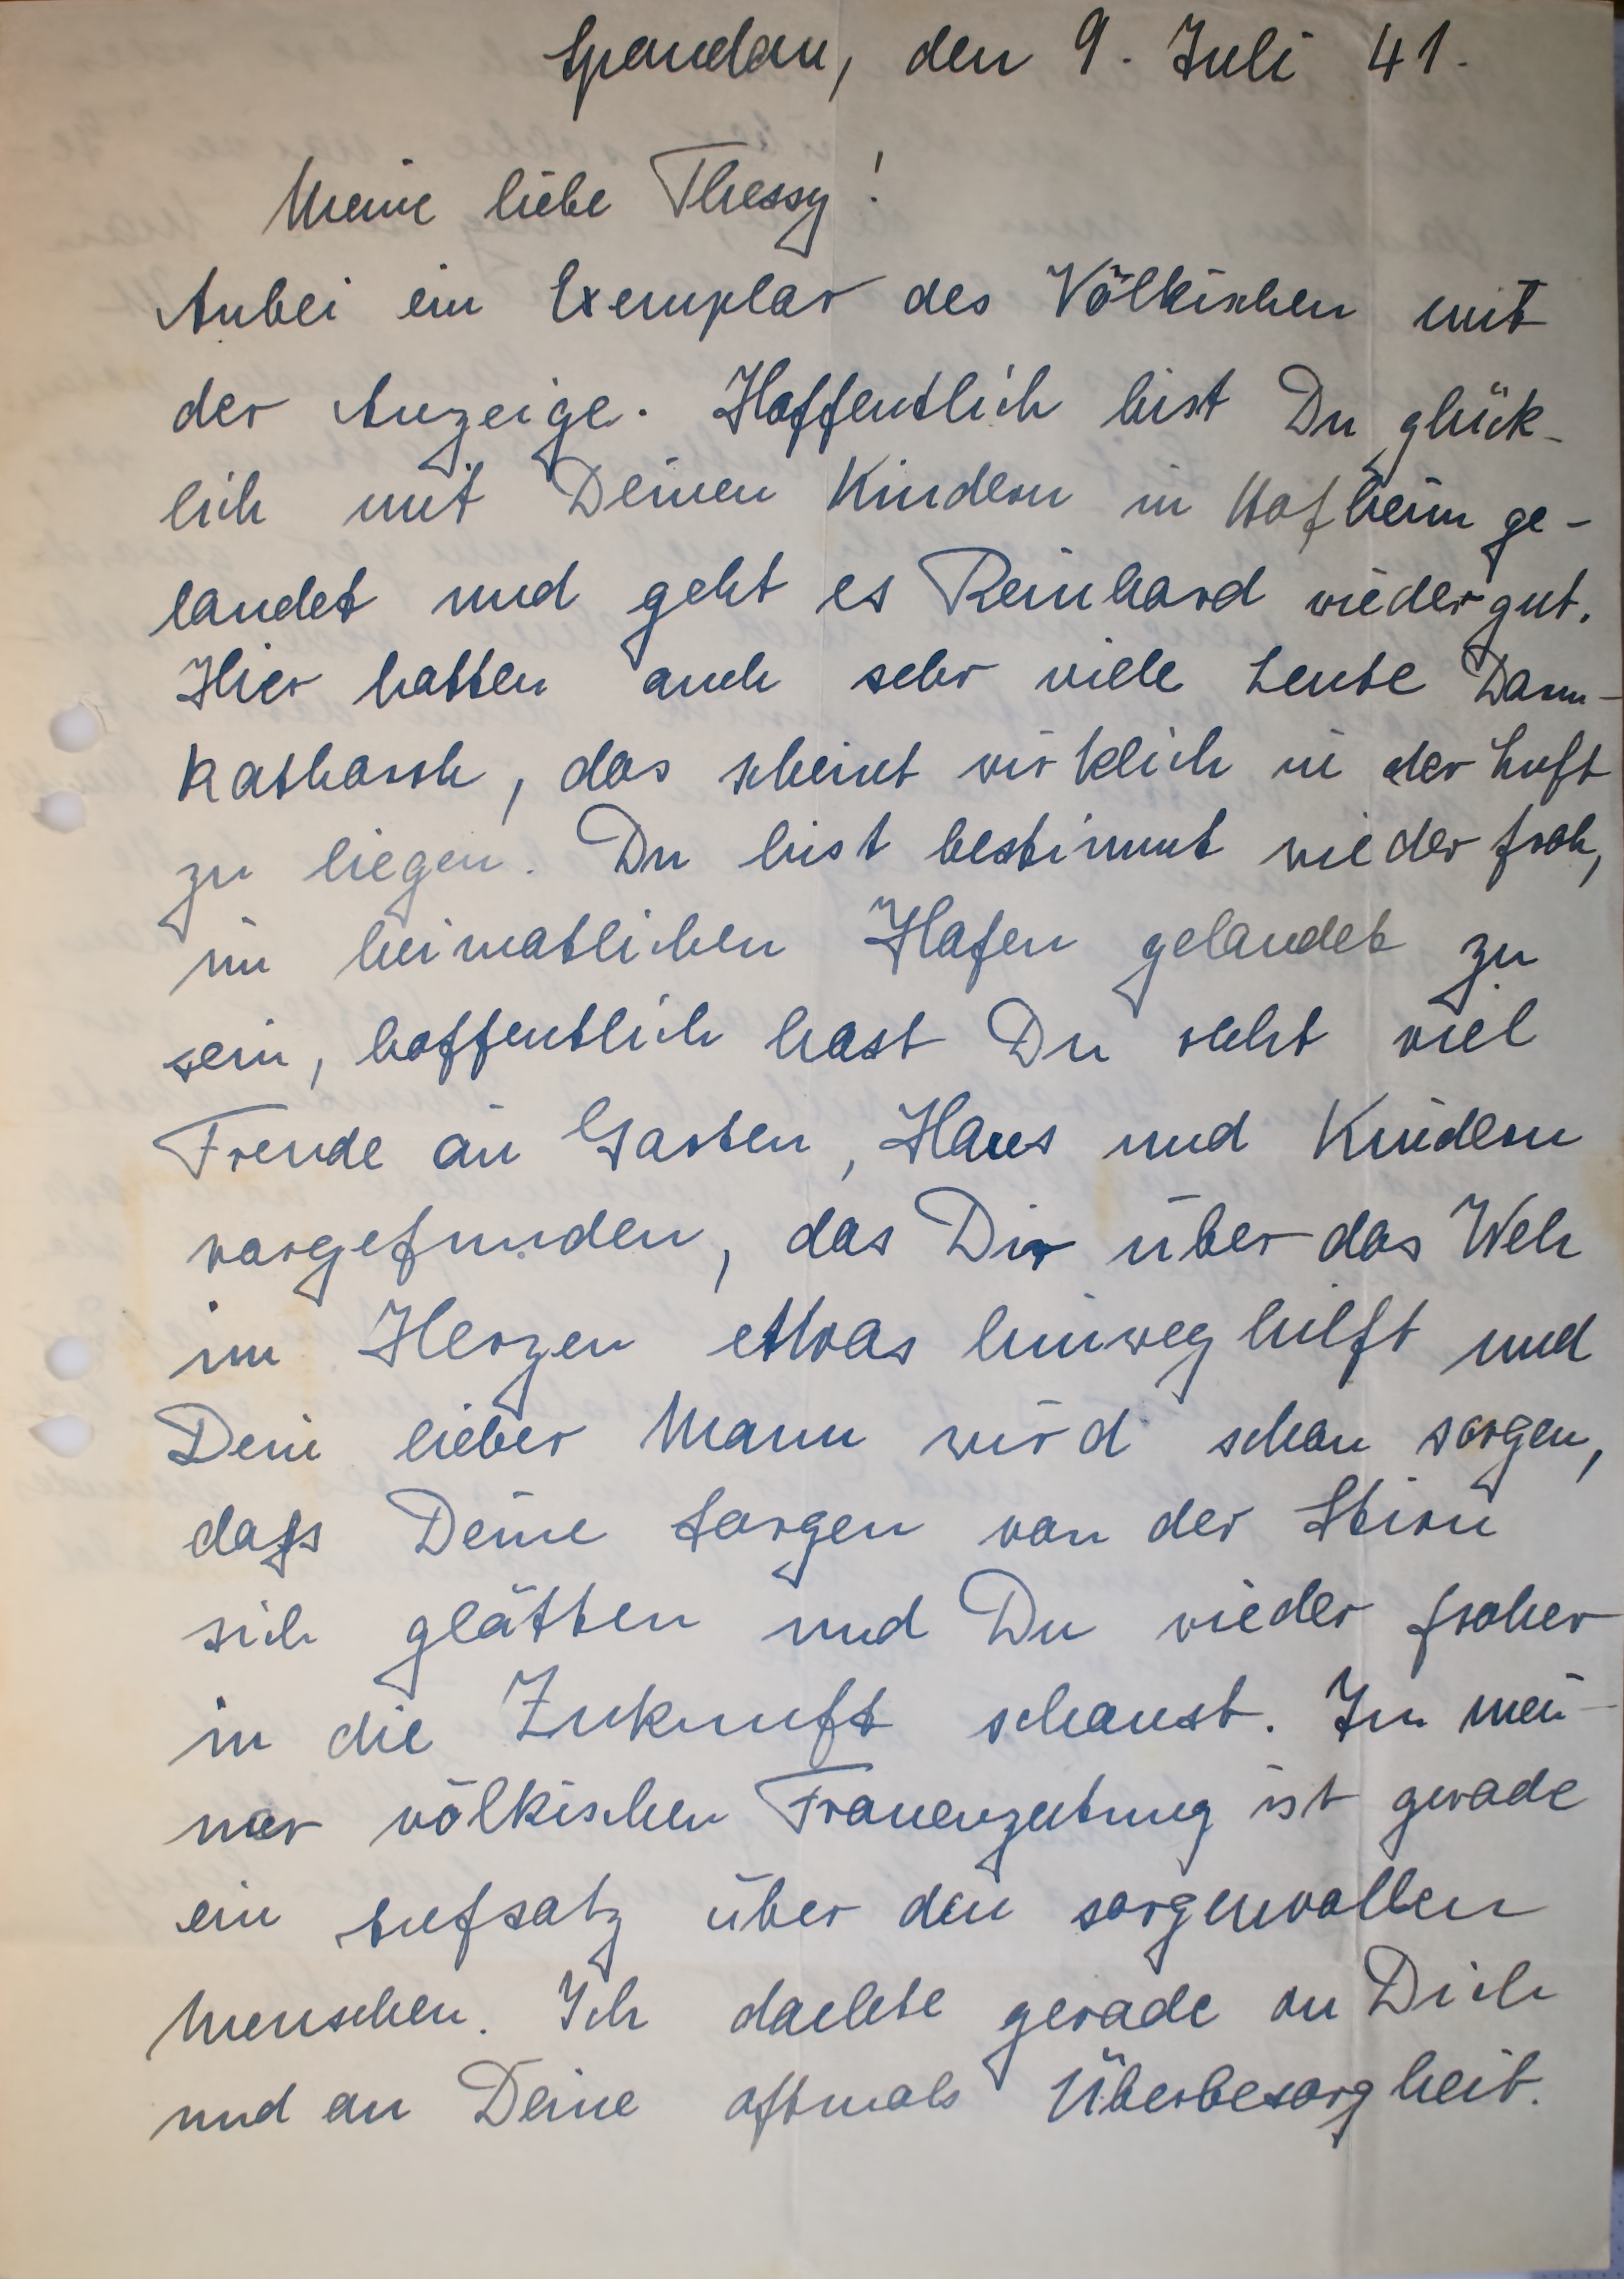 Spandau, den 9. Juli 41.
Meine liebe Thessy!
Anbei ein Exemplar des Völkischen mit
der Anzeige. Hoffentlich bist Du glück-
lich mit Deinen Kindern in Hofheim ge-
landet und geht es Reinhard wieder gut.
Hier hatten auch sehr viele Leute Darm-
katharrh, das scheint wirklich in der Luft
zu liegen. Du bist bestimmt wieder froh,
im heimatlichen Hafen gelandet zu
sein, hoffentlich hast Du recht viel
Freude an Garten, Haus und Kindern
vorgefunden, das Dir über das Weh
im Herzen etwas hinweg hilft und
Dein lieber Mann wird schon sorgen,
dass Deine Sorgen von der Stirn
sich glätten und Du wieder froher
in die Zukunft schaust. In mei-
ner völkischen Frauenzeitung ist gerade
ein Aufsatz über den sorgenvollen
Menschen. Ich dachte gerade an Dich
und an Deine oftmals Überbesorgheit.